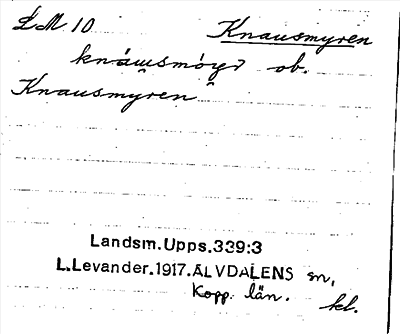 L.M. 10 Knausmyren
ob.
Knausmyren
Landsm.Upps.339:3
L.Levander.1917.ÄLVDALENS sn,
Kopp. län.
kl.